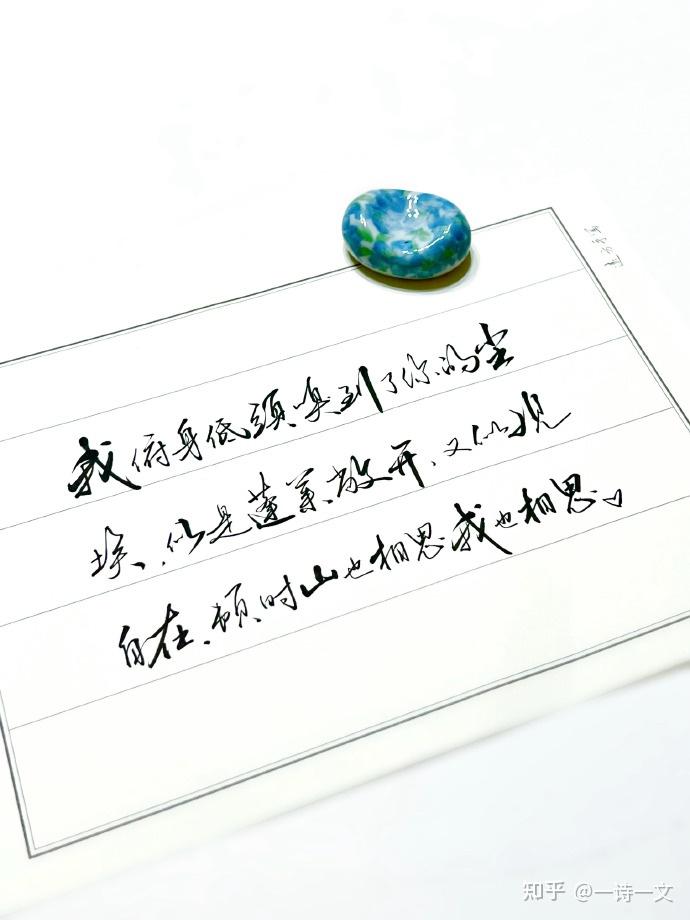 我俯身低頭嗅到了你的尘
埃、似是蓬莱、敞开、又似观
自在、顿时山也相思我也相思。
知乎 @一诗一文